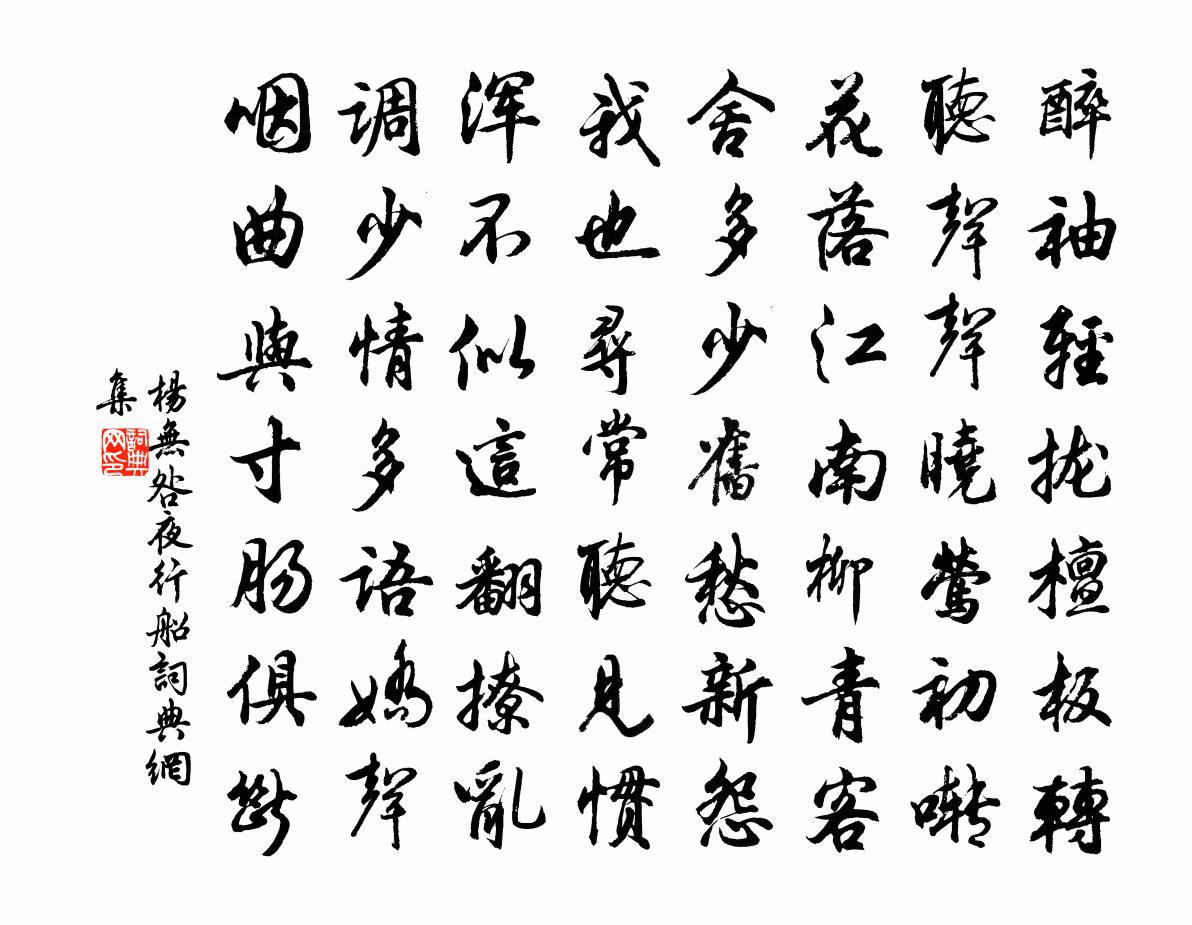 醉袖輕攏檀板轉
聽聲聲曉鶯初囀
花落江南柳青客
舍多少舊愁新怨
我也尋常聽見慣
渾不似這翻撩亂
調少情多語嬌聲
咽曲與寸腸俱斷
楊無咎夜行船詞典網
集
詞典网印